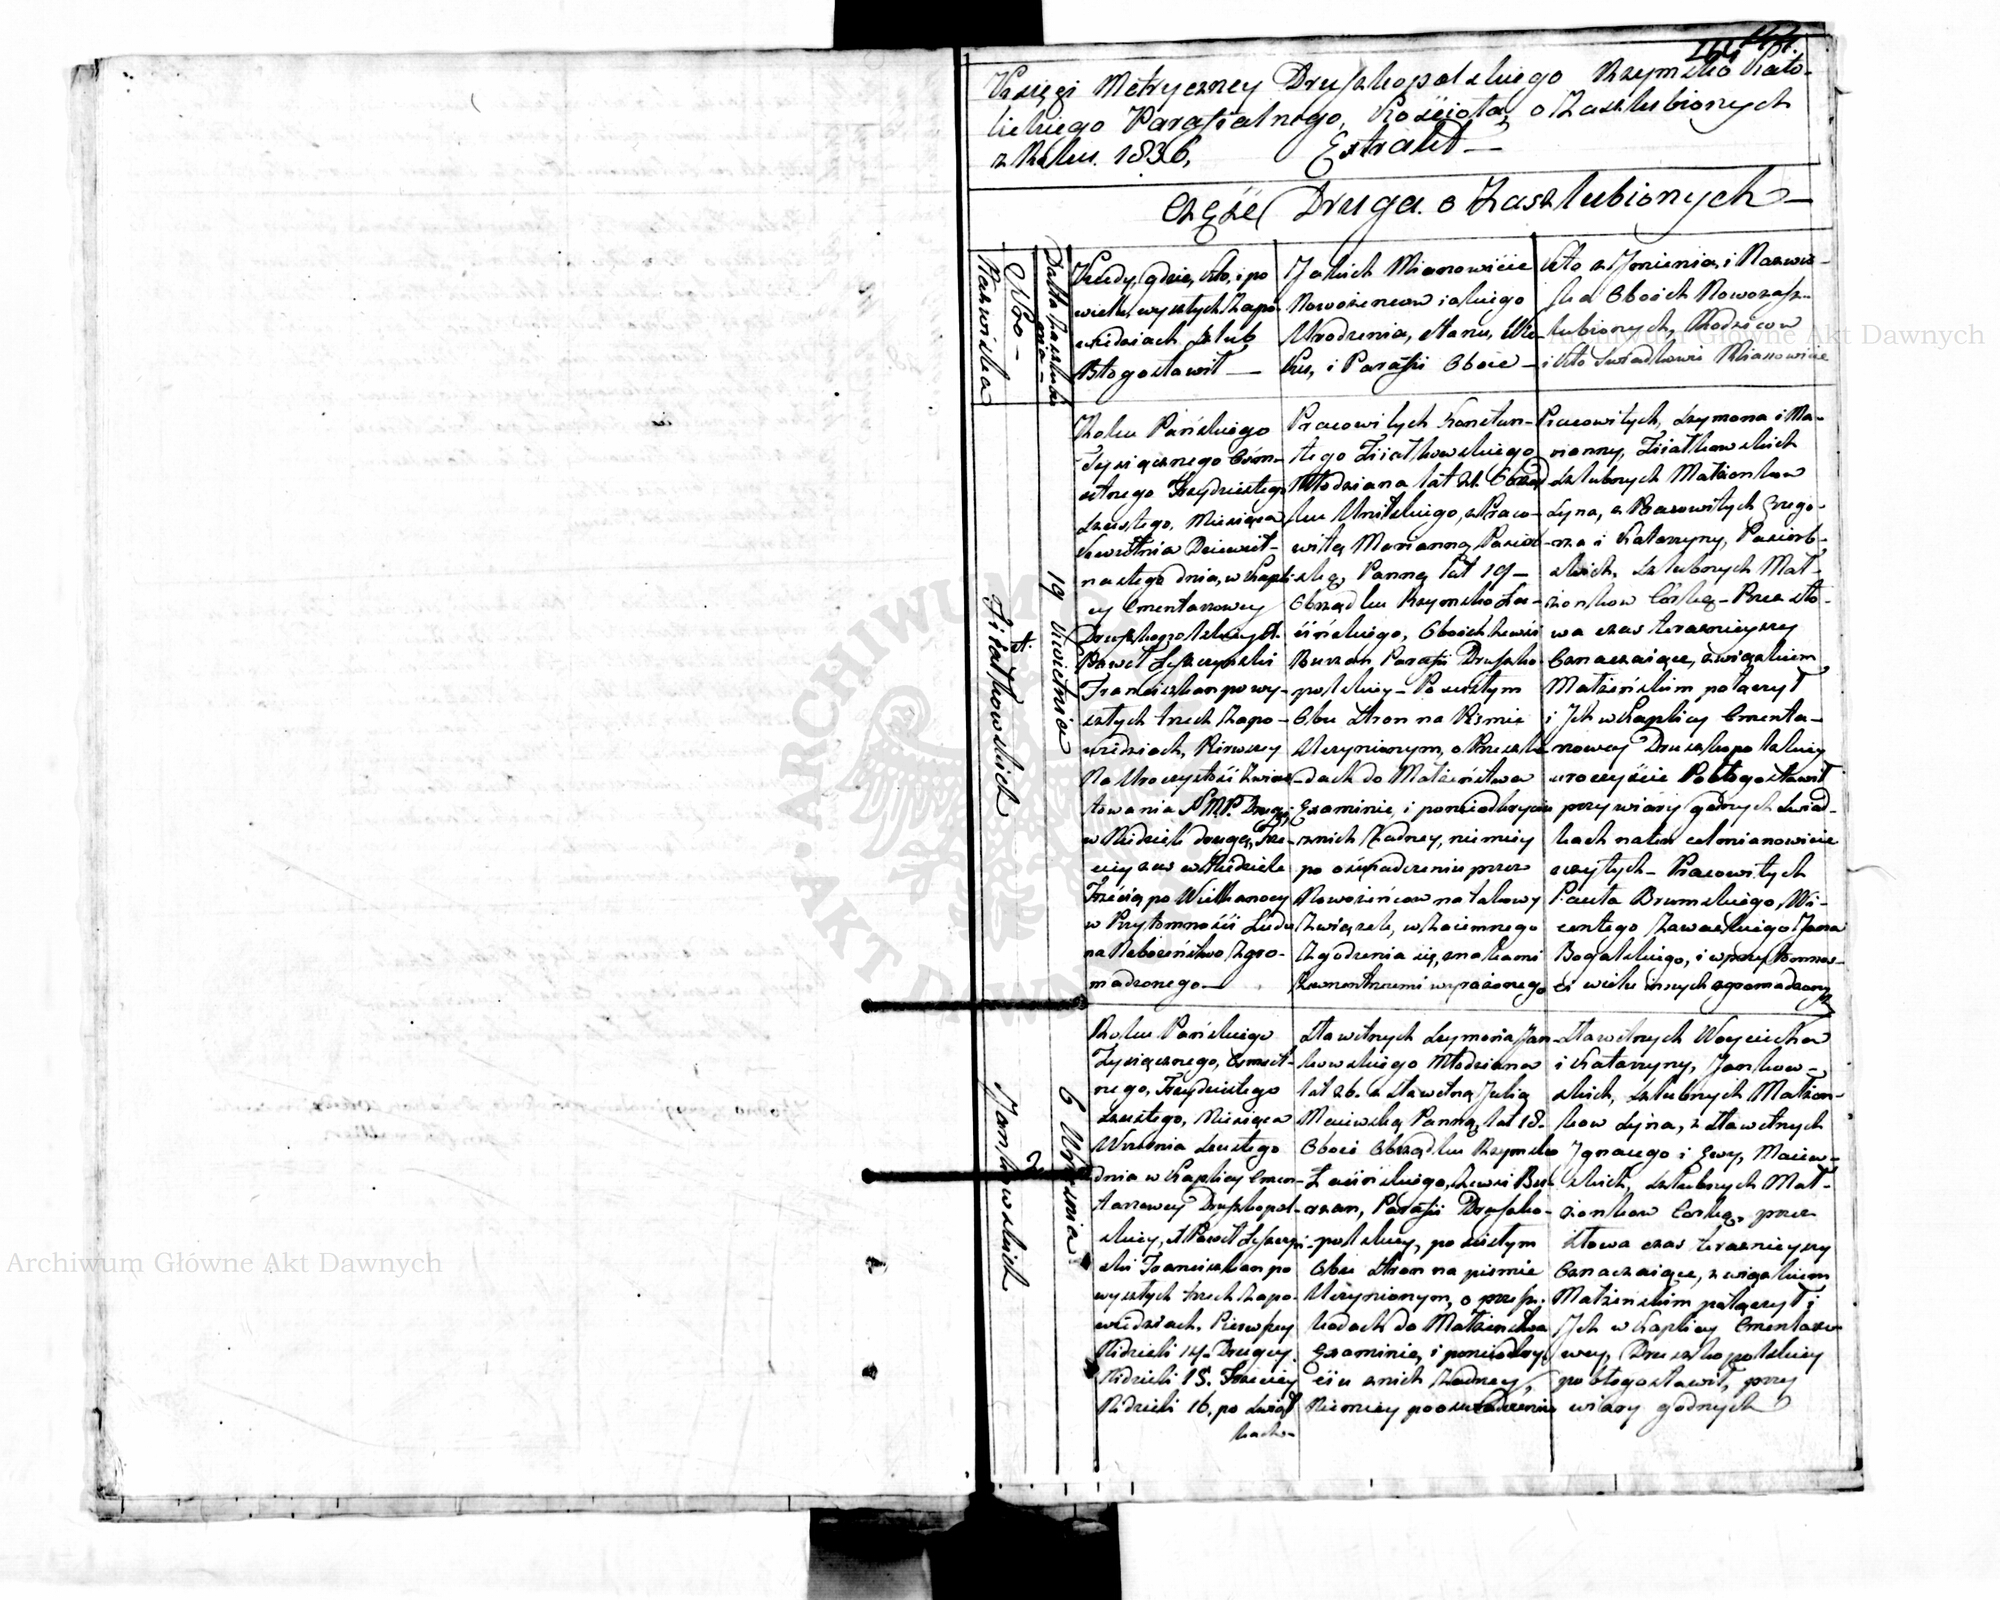 Księgi Metryczney Druszkopolskiego Rzymsko Kato-
lickiego Parafialnego, Kościoła, o Zaszlubionych
z Roku. 1836, Extrakt —
Część Druga. o Zaszlubionych —
Nazwiska
Nro —
Datta zaszlubie
nia —
Kiedy, gdzie, kto, i po
wielu, wyszłych Zapo-
wiedziach szlub
Błogosławił —
Jakich Mianowicie
Nowożencow iakiego
Urodzenia, stanu, Wie-
ku, i Parafii Oboie —
Kto z Jmienia, i Nazwis-
ka Oboich Nowozasz-
lubionych, Rodzicow
i kto Swiadkowie Mianowicie
Ziiatkowskich
1.
19 Kwietnia
Roku Pańskiego
Tysiącznego Ośm-
setnego Trzydziestego
szostego, Miesiąca
Kwietnia Dziewięt-
nastego dnia, w Kapli-
cy Cmentarzowey
Druszkopolskiey X.
Paweł Łyszczynski
Franciszkan po wy-
szłych trzech Zapo-
wiedziach, Pierwszey
Na Uroczystość Zwias-
towania N.M.P. Drugiey
w Niedziele drugą, Trze-
ciey zas w Niedziele
Trzecią po Wielkanocy
w Przytomności Ludu
na Nabożeństwo Zgro-
madzonego —
Pracowitych Konstan-
tego Ziiatkowskiego
Młodziana lat 21. Obrząd
ku Unitskiego, z Praco-
witą Marianną Pasiorb-
ską, Panną lat 19 —
Obrządku Rzymsko Ła-
cińskiego, Oboich z wsi
Burzan Parafii Druszko-
polskiey — Po scisłym
Obu Stron na Pismie
Uczynionym, o Przeszko-
dach do Małżeństwa
Examinie, i po nieodkryciu
z nich Żadney, niemiey
po oświadczeniu przez
Nowożeńcow na takowy
Związek, wzaiemnego
Zgodzenia się, znakami
Zewnentrznemi wyrażonego
Pracowitych, Szymona i Ma-
rianny, Ziiatkowskich
szlubnych Małżonkow
Syna, z Pracowitych Grego-
rza i Katarzyny, Pasiorb-
skich, szlubnych Mał-
żonkow Corką — Przez sło-
wa czas teraznieyszy
Oznaczaiące, związkiem
Małżeńskim połączył
i Jch w Kaplicy Cmenta-
rzowey Druszkopolskiey
uroczyście Pobłogosławił
przy wiary godnych Swiad-
kach na ten cel mianowicie
użytych — Pracowitych
Pawła Brumskiego, Wi-
centego Zawadzkiego Jana
Bogalskiego, i w przytomnos-
ci wielu innych zgromadzony
Jankowskich
2
6 Września
Roku Pańskiego
Tysiącznego, Osmset-
nego, Trzydziestego
szostego, Miesiąca
Września szostego
dnia w Kaplicy Cmen-
tarzowey Druszkopol-
skiey, X Paweł Łyszczyn-
ski Franciszkan po
wyszłych trzech Zapo-
wiedziach. Pierwszey
Niedzieli 14. Drugiey
Niedzieli 15. Trzeciey
Niedzieli 16. po Swiąt
kach —
Sławetnych Szymona Jan-
kowskiego Młodziana
lat 26. z Sławetną Julią
Maiewską Panną, lat 18.
Oboie Obrządku Rzymsko
Łacińskiego, z wsi Bu-
rzan, Parafii Druszko-
polskiey, po scisłym
Obu Stron na pismie
Uczynionym, o przesz-
kodach do Małżeństwa
Examinie, i po nieodkry-
ciu z nich Żadney,
Niemiey po oswiadczeniu
Sławetnych Woyciecha
i Katarzyny, Jankow-
skich, szlubnych Małżon-
kow Syna, z Sławetnych
Jgnacego i Ewy, Maiew-
skich, szlubnych Mał-
żonkow Corką, przez
słowa czas teraznieyszy
Oznaczaiące, związkiem
Małżeńskim połączył i
Jch w Kaplicy Cmentarzo
wey, Druszkopolskiey
pobłogosławił, przy
wiary godnych
Archiwum Główne Akt Dawnych
Archiwum Główne Akt Dawnych